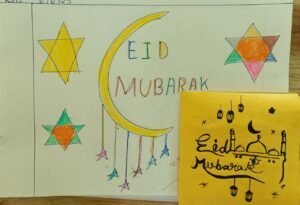 EID
MUBARAK
Eid
Mubarak